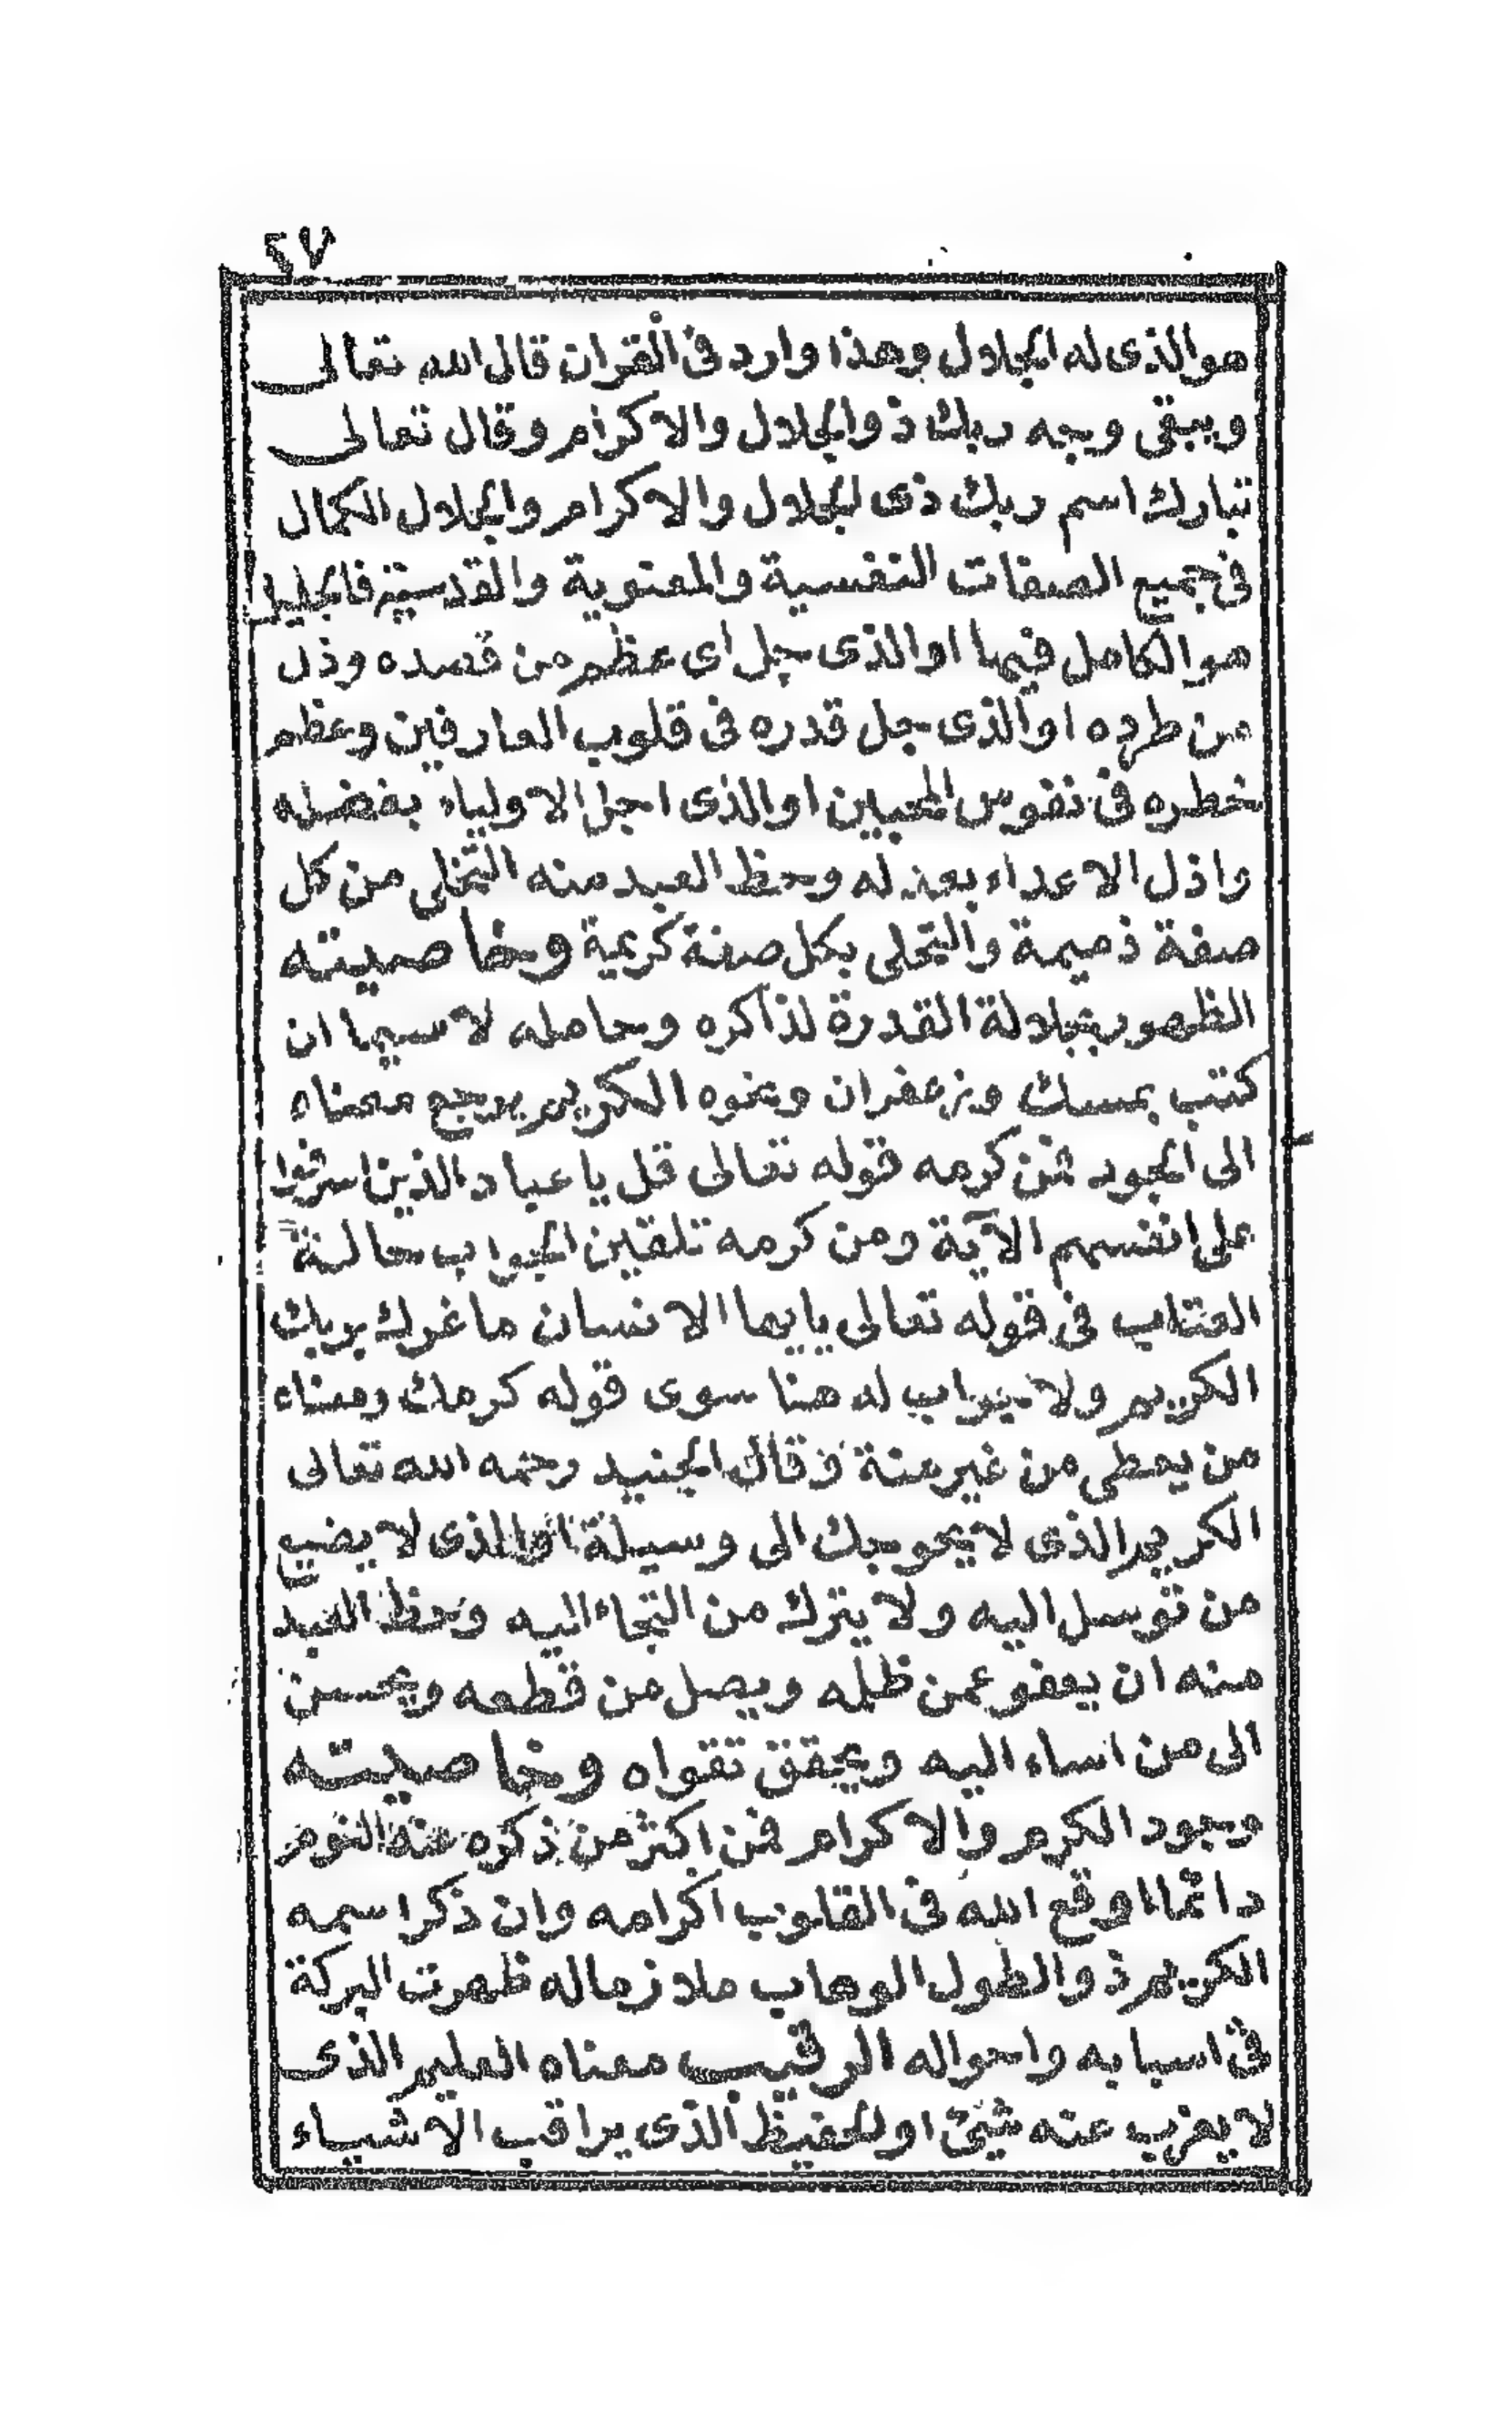 ٤٧
هوالذى له الجلال وهذا وارد فى القران قال الله تعالى
ويبقى وجه ربك ذوالجلال والاكرام وقال تعالى
تبارك اسم ربك ذى الجلال والاكرام والجلال الكمال
فى جميع الصفات النفسية والمعنوية والقدسية فالجليل
هوالكامل فيها اوالذى جل اى عظم من قصده وذل
من طرده اوالذى جل قدره فى قلوب العارفين وعظم
خطره فى نفوس المحبين اوالذى اجل الاولياء بفضله
واذل الاعداء بعدله وحظ العبد منه التخلى من كل
صفة ذميمة والتحلى بكل صفة كريمة وخاصيته
الظهور بجلالة القدرة لذاكره وحامله لاسيما ان
كتب بمسك وزعفران ونحوه الكريم يرجع معناه
الى الجود فمن كرمه قوله تعالى قل ياعباد الذين اسرفوا
على انفسهم الآية ومن كرمه تلقين الجواب حالة
العتاب فى قوله تعالى يايها الانسان ماغرك بربك
الكريم ولا جواب له هنا سوى قوله كرمك ومعناه
من يعطى من غير منة وقال الجنيد رحمه الله تعالى
الكريم الذى لا يحوجك الى وسيلة اوالذى لا يضيع
من توسل اليه ولا يترك من التجاء اليه وحظ العبد
منه ان يعفو عمن ظلمه ويصل من قطعه ويحسن
الى من اساء اليه ويحقق تقواه وخاصيته
وجود الكرم والاكرام فمن اكثر من ذكره عند النوم
دائما اوقع الله فى القلوب اكرامه وان ذكر اسمه
الكريم ذوالطول الوهاب ملازماله ظهرت البركة
فى اسبابه واحواله الرقيب معناه العليم الذى
لا يعزب عنه شيئ اوالحفيظ الذى يراقب الاشياء